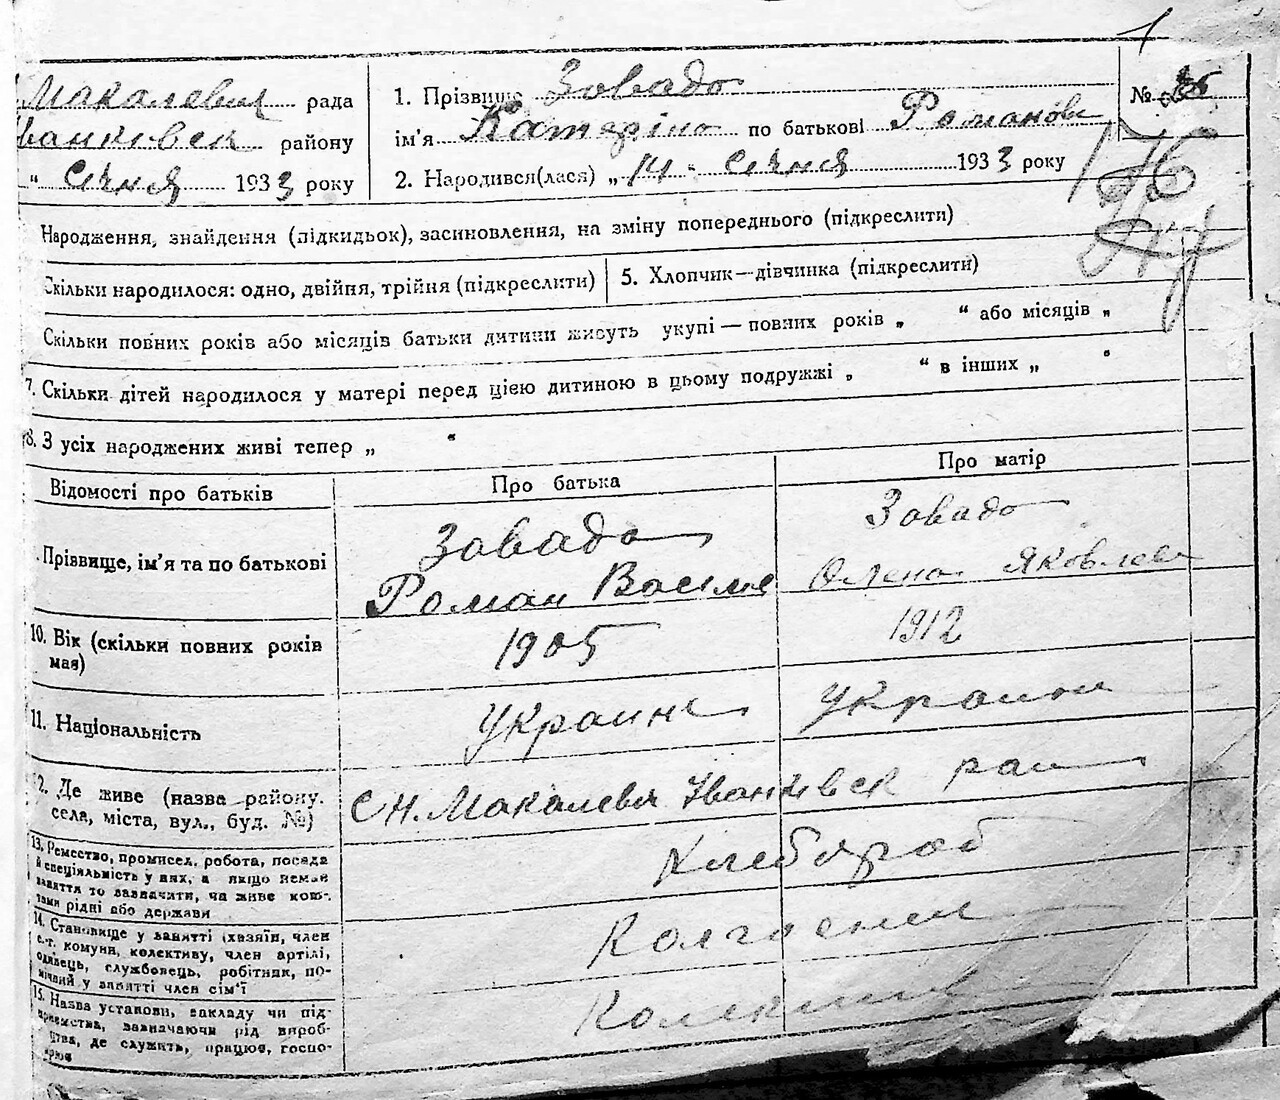 1
Макалевич рада
Іванківськ району
„ Січня 1933 року
1. Прізвище Зовадо
ім'я Катеріна по батькові Романовн
2. Народився(лася) „ 14 Січня 1933 року
№
176
Народження, знайдення (підкидьок), засиновлення, на зміну попереднього (підкреслити)
Скільки народилося: одно, двійня, трійня (підкреслити)
5. Хлопчик—дівчинка (підкреслити)
Скільки повних років або місяців батьки дитини живуть укупі — повних років „ “ або місяців „
7. Скільки дітей народилося у матері перед цією дитиною в цьому подружжі „ “ в інших „ “
8. З усіх народжених живі тепер „ “
Відомості про батьків
Про батька
Про матір
Прізвище, ім'я та по батькові
Зовадо
Роман Васил
Зовадо
Олена Яковлев
10. Вік (скільки повних років
має)
1905
1912
11. Національність
Украинс
Украин
12. Де живе (назва району,
села, міста, вул., буд. №)
с Н. Макалевич Іванківск рай
13. Ремество, промисел, робота, посада
й спеціяльність у них, а якщо немає
заняття то зазначити, чи живе кош-
тами рідні або держави
Хлебороб
14. Становище у занятті (хазяїн, член
с.-г. комуни, колективу, член артілі,
одинець, службовець, робітник, по-
мічний у занятті член сім'ї
15. Назва установи, закладу чи під-
приємства, зазначаючи рід вироб-
ництва, де служить, працює, госпо-
дарює